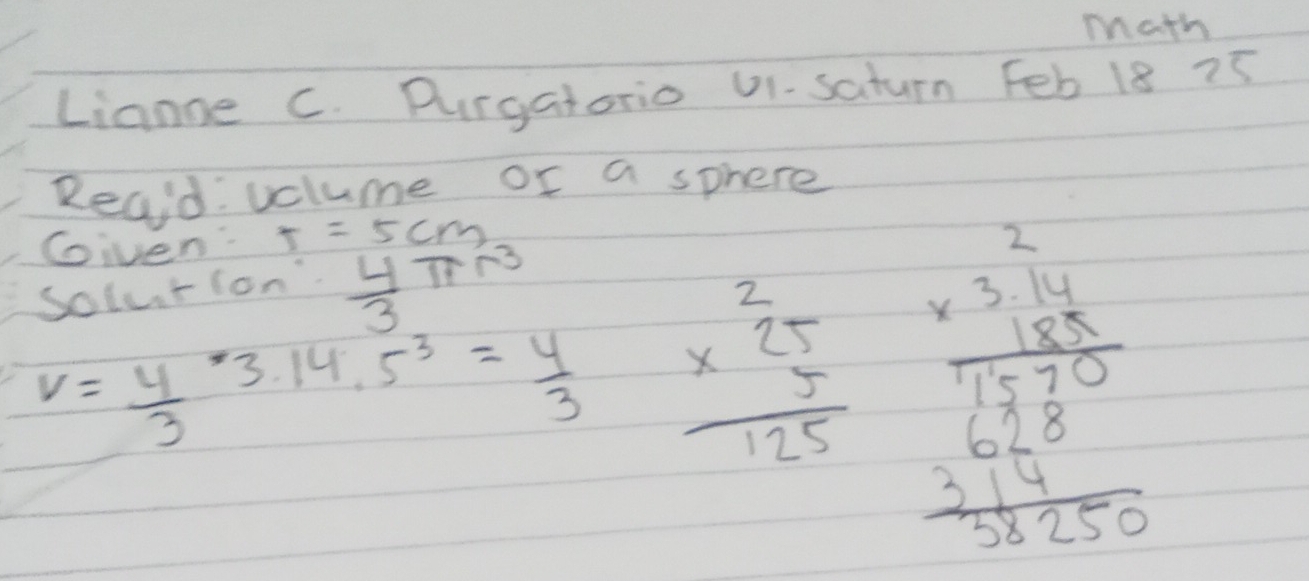 Math
Lianne C. Purgatorio VI-Saturn Feb 18 25
Req'd: volume of a sphere
Given: r = 5cm
Solution: 4/3 πr³
V = 4/3 * 3.14 . 5³ = 4/3
2
25
x 5
125
2
x 3.14
185
1570
628
314
38250